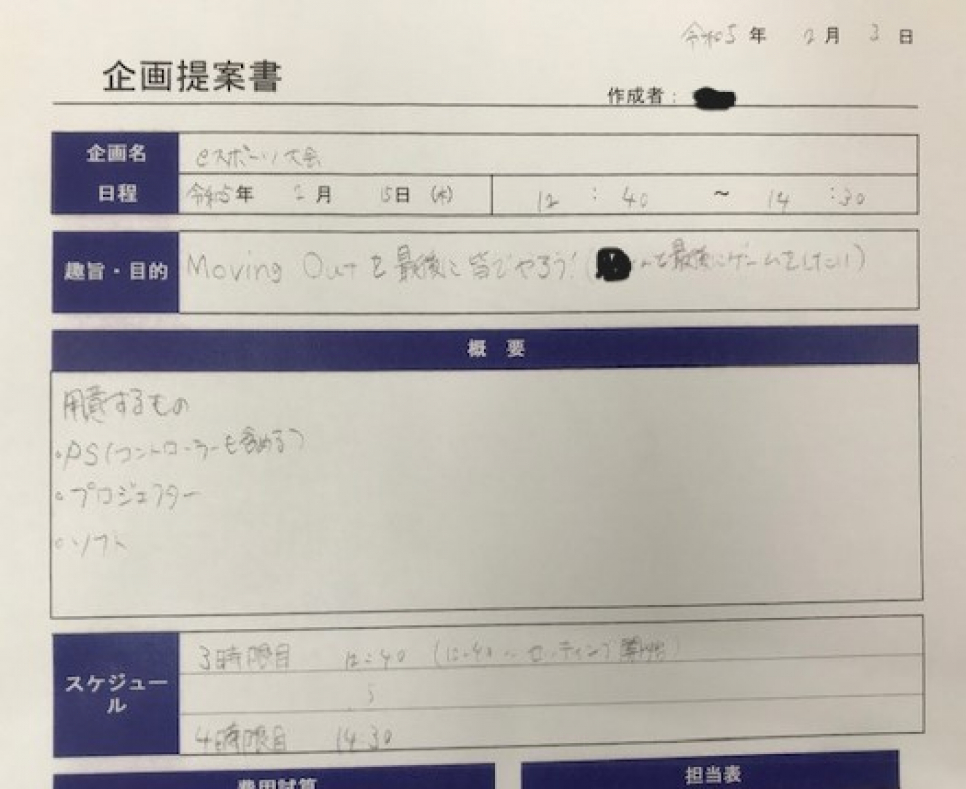 令和5年 2月 3日
企画提案書
作成者：
企画名 eスポーツ大会
日程 令和5年 2月 15日(水) 12:40 ~ 14:30
趣旨・目的 Moving Outを最後に皆でやろう!( んと最後にゲームをしたい!)
概 要
用意するもの
・PS(コントローラーも含める)
・プロジェクター
・ソフト
スケジュール
3時限目 12:40 (12:40~セッティング開始)
4時限目 14:30
費用試算 担当表